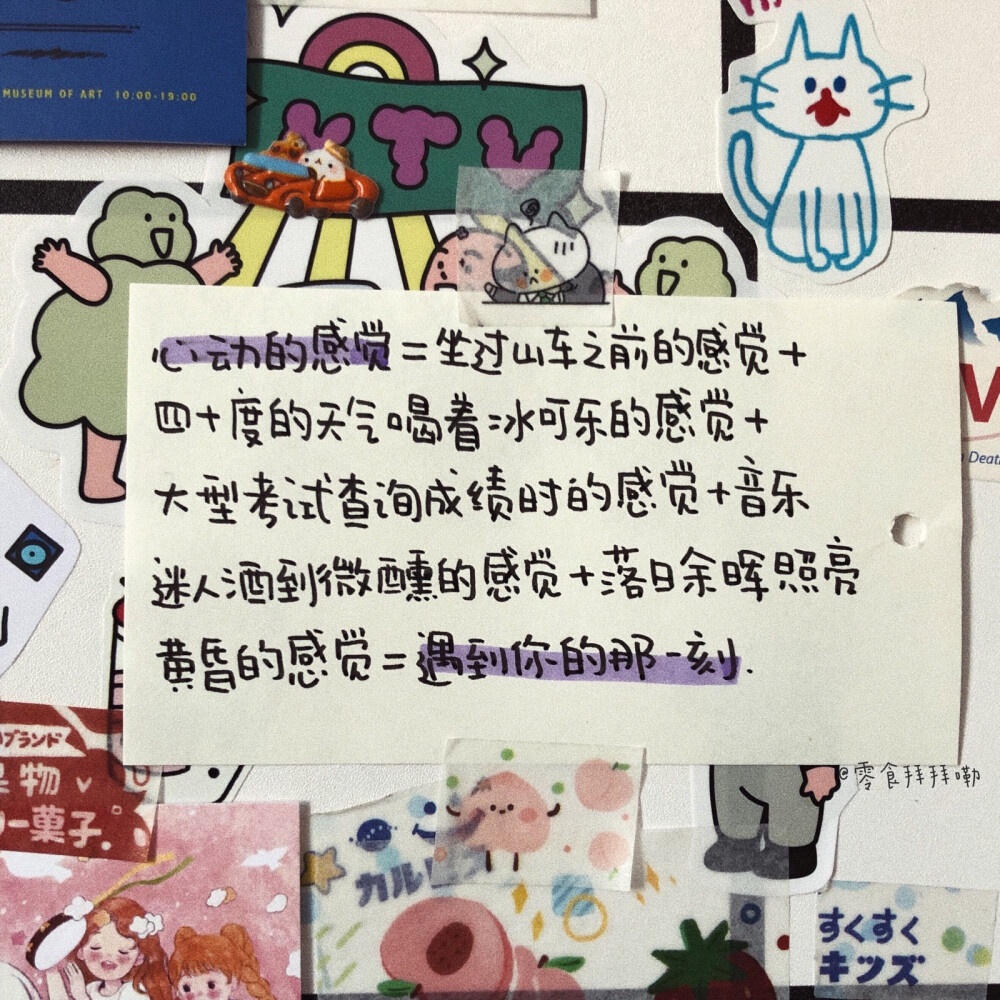 MUSEUM OF ART 10:00-19:00
KTV
心动的感觉=坐过山车之前的感觉+
四十度的天气喝着冰可乐的感觉+
大型考试查询成绩时的感觉+音乐
迷人洒到微醺的感觉+落日余晖照亮
黄昏的感觉=遇到你的那一刻.
V
Death
ブランド
物
菓子.
@零食拜拜嘞
カル
すくすく
キッズ